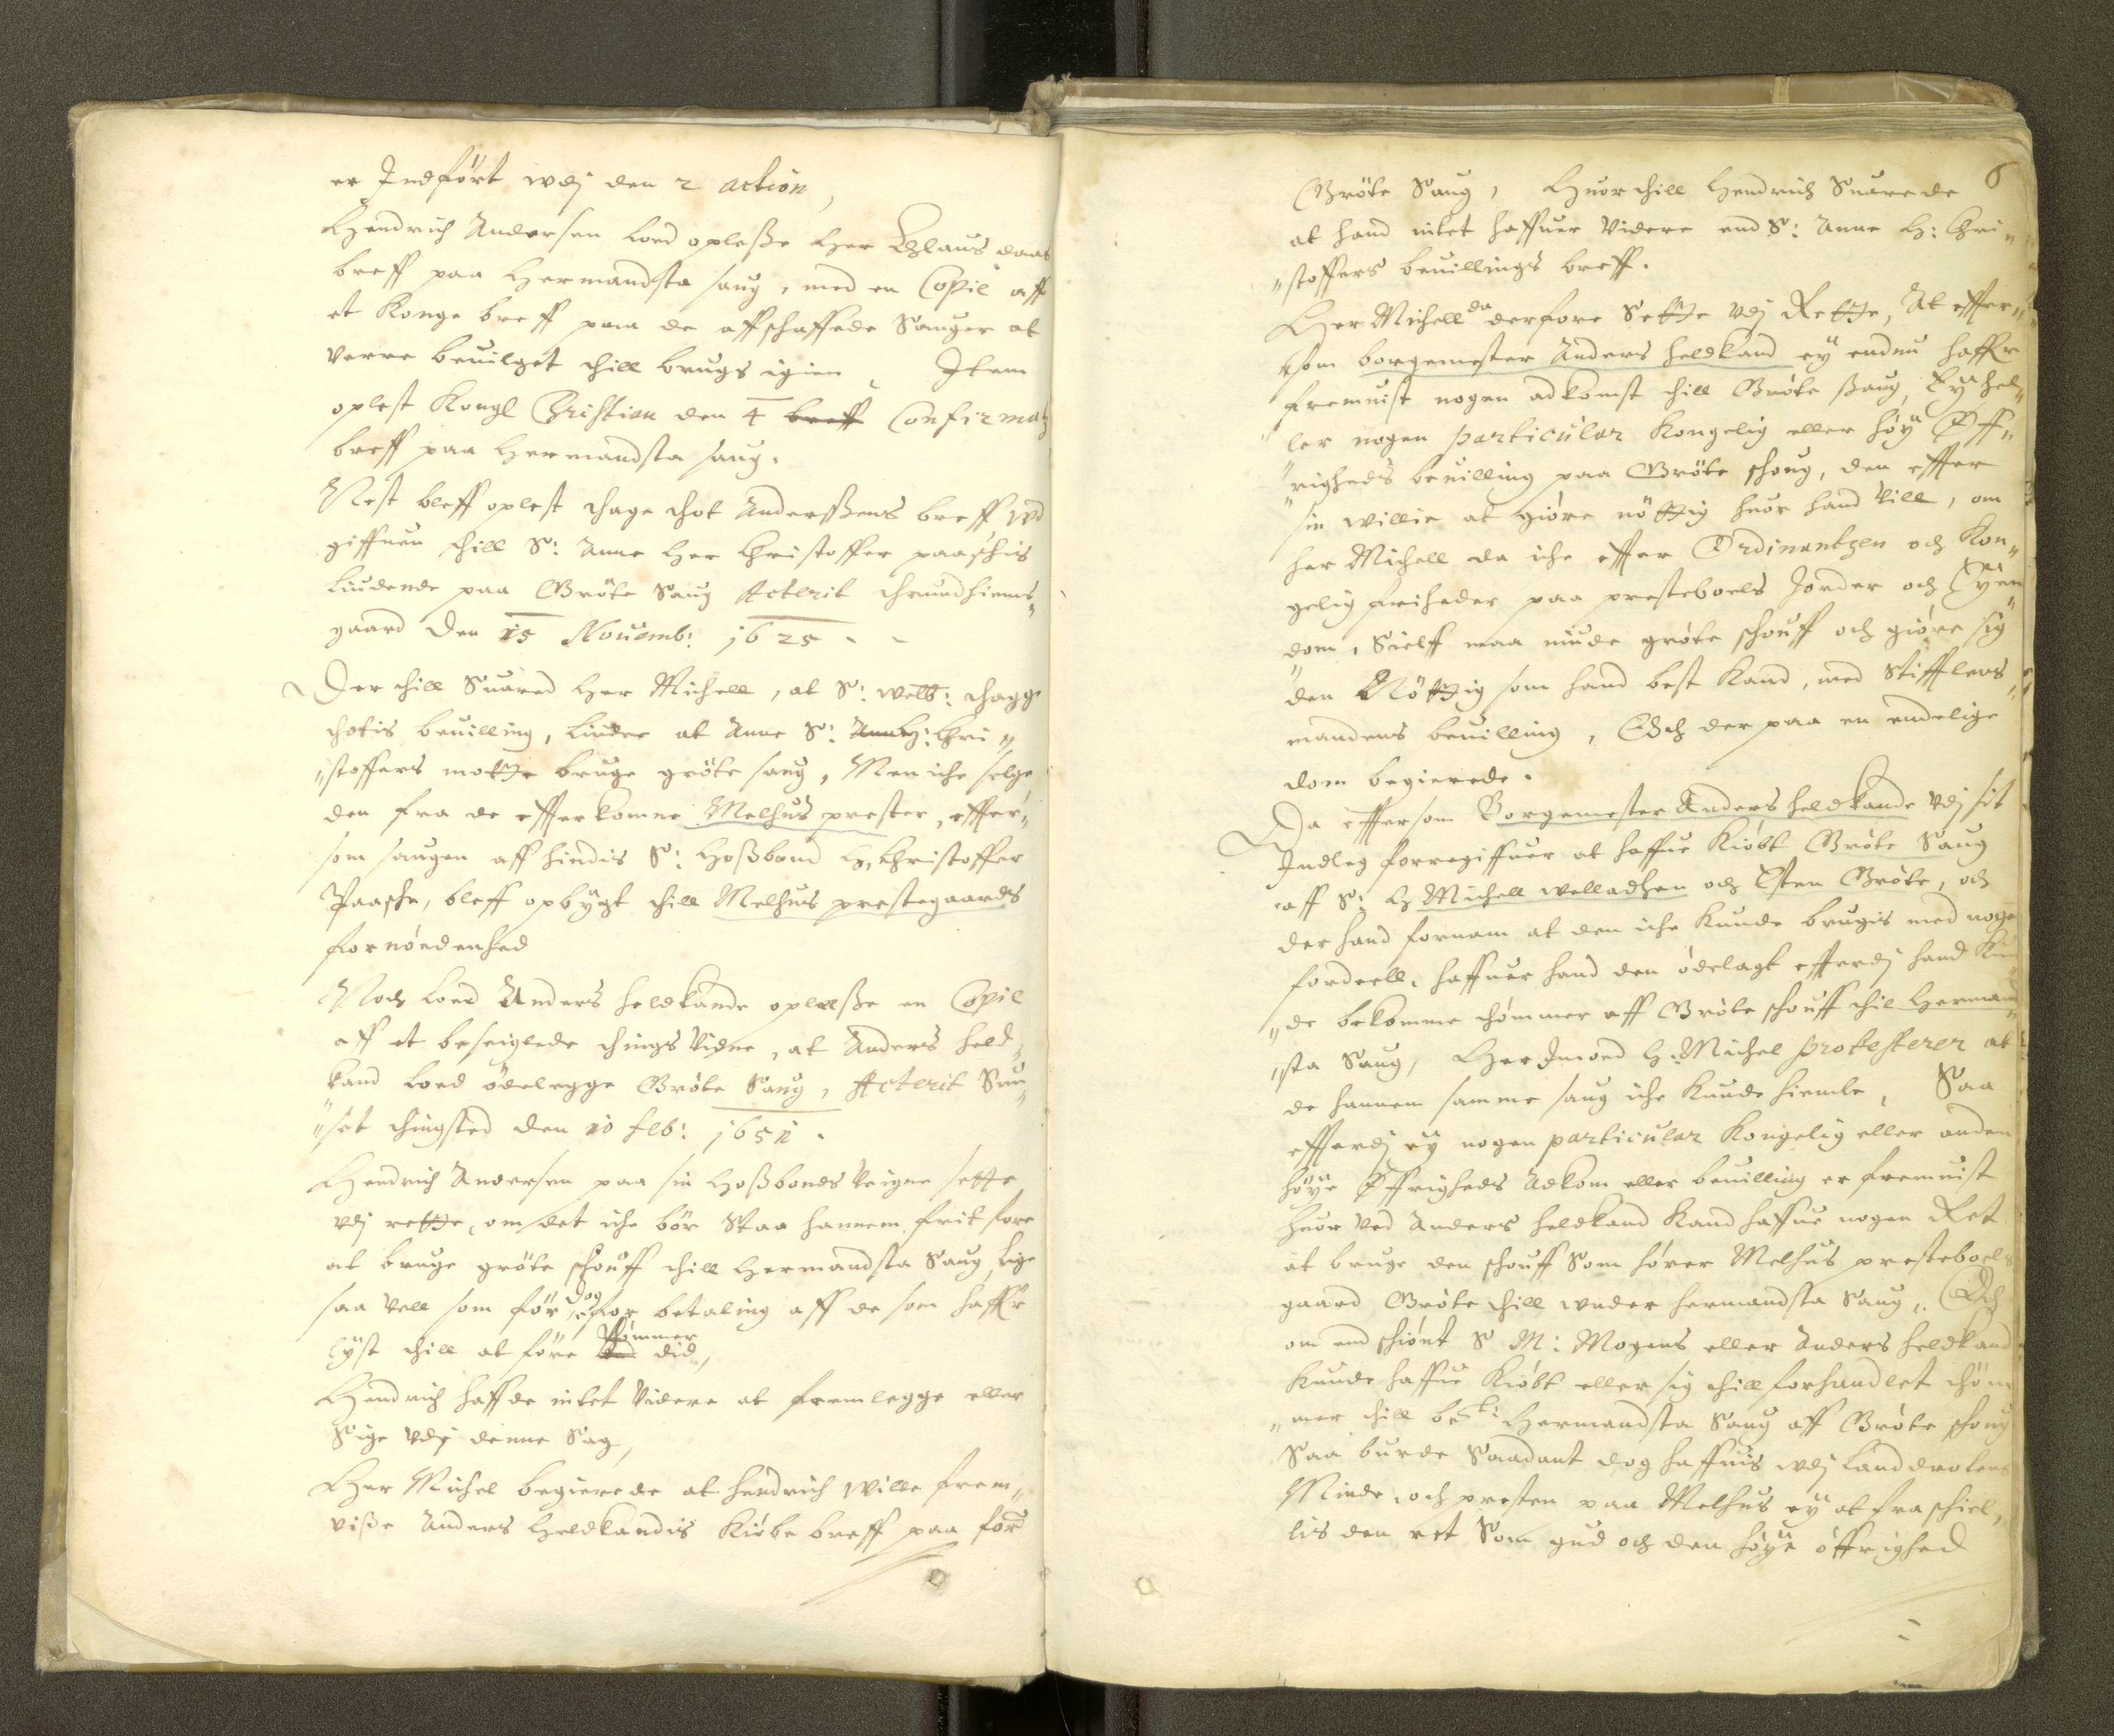 er Indført wdj den 2 action,
Hendrich Andersen loed oplesse Her Claus daas
breff paa Hermandsta saug, med en Copie aff
et Konge breff paa de affschaffede Sauger at
verre beuilget thill brugs igien, Item
oplest Kongl Christian den 4 breff Confirmatz
breff paa Hermandsta saug.
Nest bleff oplest thage thot Anderssens breff wd
giffuen thill S: Anne Her Christoffer paaschis
liudende paa Gröte Saug Acterit thrundhiems„
gaard den 15 Nouemb: 1625 - -
Der thill Suared Her Michell, at S: welb: thagge
thotis beuilling, liuder at Anne S: Anne H: Chri„
„stoffers motte bruge gröte saug, Men iche selge
den fra de effterkomne Melhus prester, effter„
som saugen aff hindis S: Hossbond H, Christoffer
Paasche, bleff opbÿgt thill Melhus prestegaards
fornödenhed
Noch loed Anders heldkande oplesse en Copie
aff et beseiglede things vidne, at Anders held„
kand loed ödelegge Gröte Saug, Acterit Sun„
„set thingsted den 10 feb: 1651.
Hendrich Andersen paa sin Hossbonds veigne sette
vdj rette, om det iche bör staa hannem frit fore
at bruge gröte schouff thill Hermandsta Saug lige
saa vell som för dog for betaling aff de som haffr
lÿst thill at före tömmer did,
Hendrich haffde intet videre at fremlegge eller
Sige vdj denne Sag,
Her Michel begierede at hendrich wille frem„
visse Anders Heldkandis Kiöbe breff paa for:
6
Gröte Saug, Huor thill Hendrich Suarede
at hand intet haffuer videre end S: Anne H: Chri„
„stoffers beuillings breff.
Her Michell da derfore Sette vdj Rette, At effter„
„som borgemester Anders heldkand eÿ endnu haffr
fremuist nogen adkomst thill Gröte ssaug, Eÿ hel„
ler nogen particular Kongelig eller höÿ Öff„
„righeds beuilling paa Gröte schoug, den effter
sin willie at giöre nöttig huor hand vill, om
her Michell da iche effter Ordinantzen och Kon„
gelig friheder paa presteboels Jorder och Eÿen„
dom, Sielff maa niude gröte schouff och giöre sig
den Nöttig som hand best Kand, med Stifflens„
mandens beuilling, Och der paa en endelige
dom begierede.
Da effter som Borgemester Anders heldkande vdj sit
Indleg forregiffuer at haffue Kiöbt Gröte Saug
aff S: H Michell welladhen och Esten Gröte, och
der hand fornam at den iche kunde brugis med nogen
fordeell, haffuer hand den ödelagt effterdj hand kun
„de bekomme thömmer aff Gröte schouff thil Herman„
„sta Saug, Her Imod H: Michel protesterer at
de hannem samme saug iche kunde hiemle, Saa
effterdj eÿ nogen particular Kongelig eller anden
höÿe Öffrigheds Adkom eller beuilling er fremuist
huor ved Anders heldkand Kand haffue nogen Ret
at bruge den schouff Som hörer Melhus presteboels
gaard Gröte thill under hermandsta Saug,. Och
om end schiönt S M: Mogens eller Anders heldkand
kunde haffue Kiöbt eller sig thill forhandlet thöm
„mer thill be: Hermandsta Saug aff Gröte schoug
Saa burde Saadant dog haffuis wdj landdrotens
Minde, och presten paa Melhus eÿ at fraschiel„
lis den ret Som gud och den höÿe öffrighed